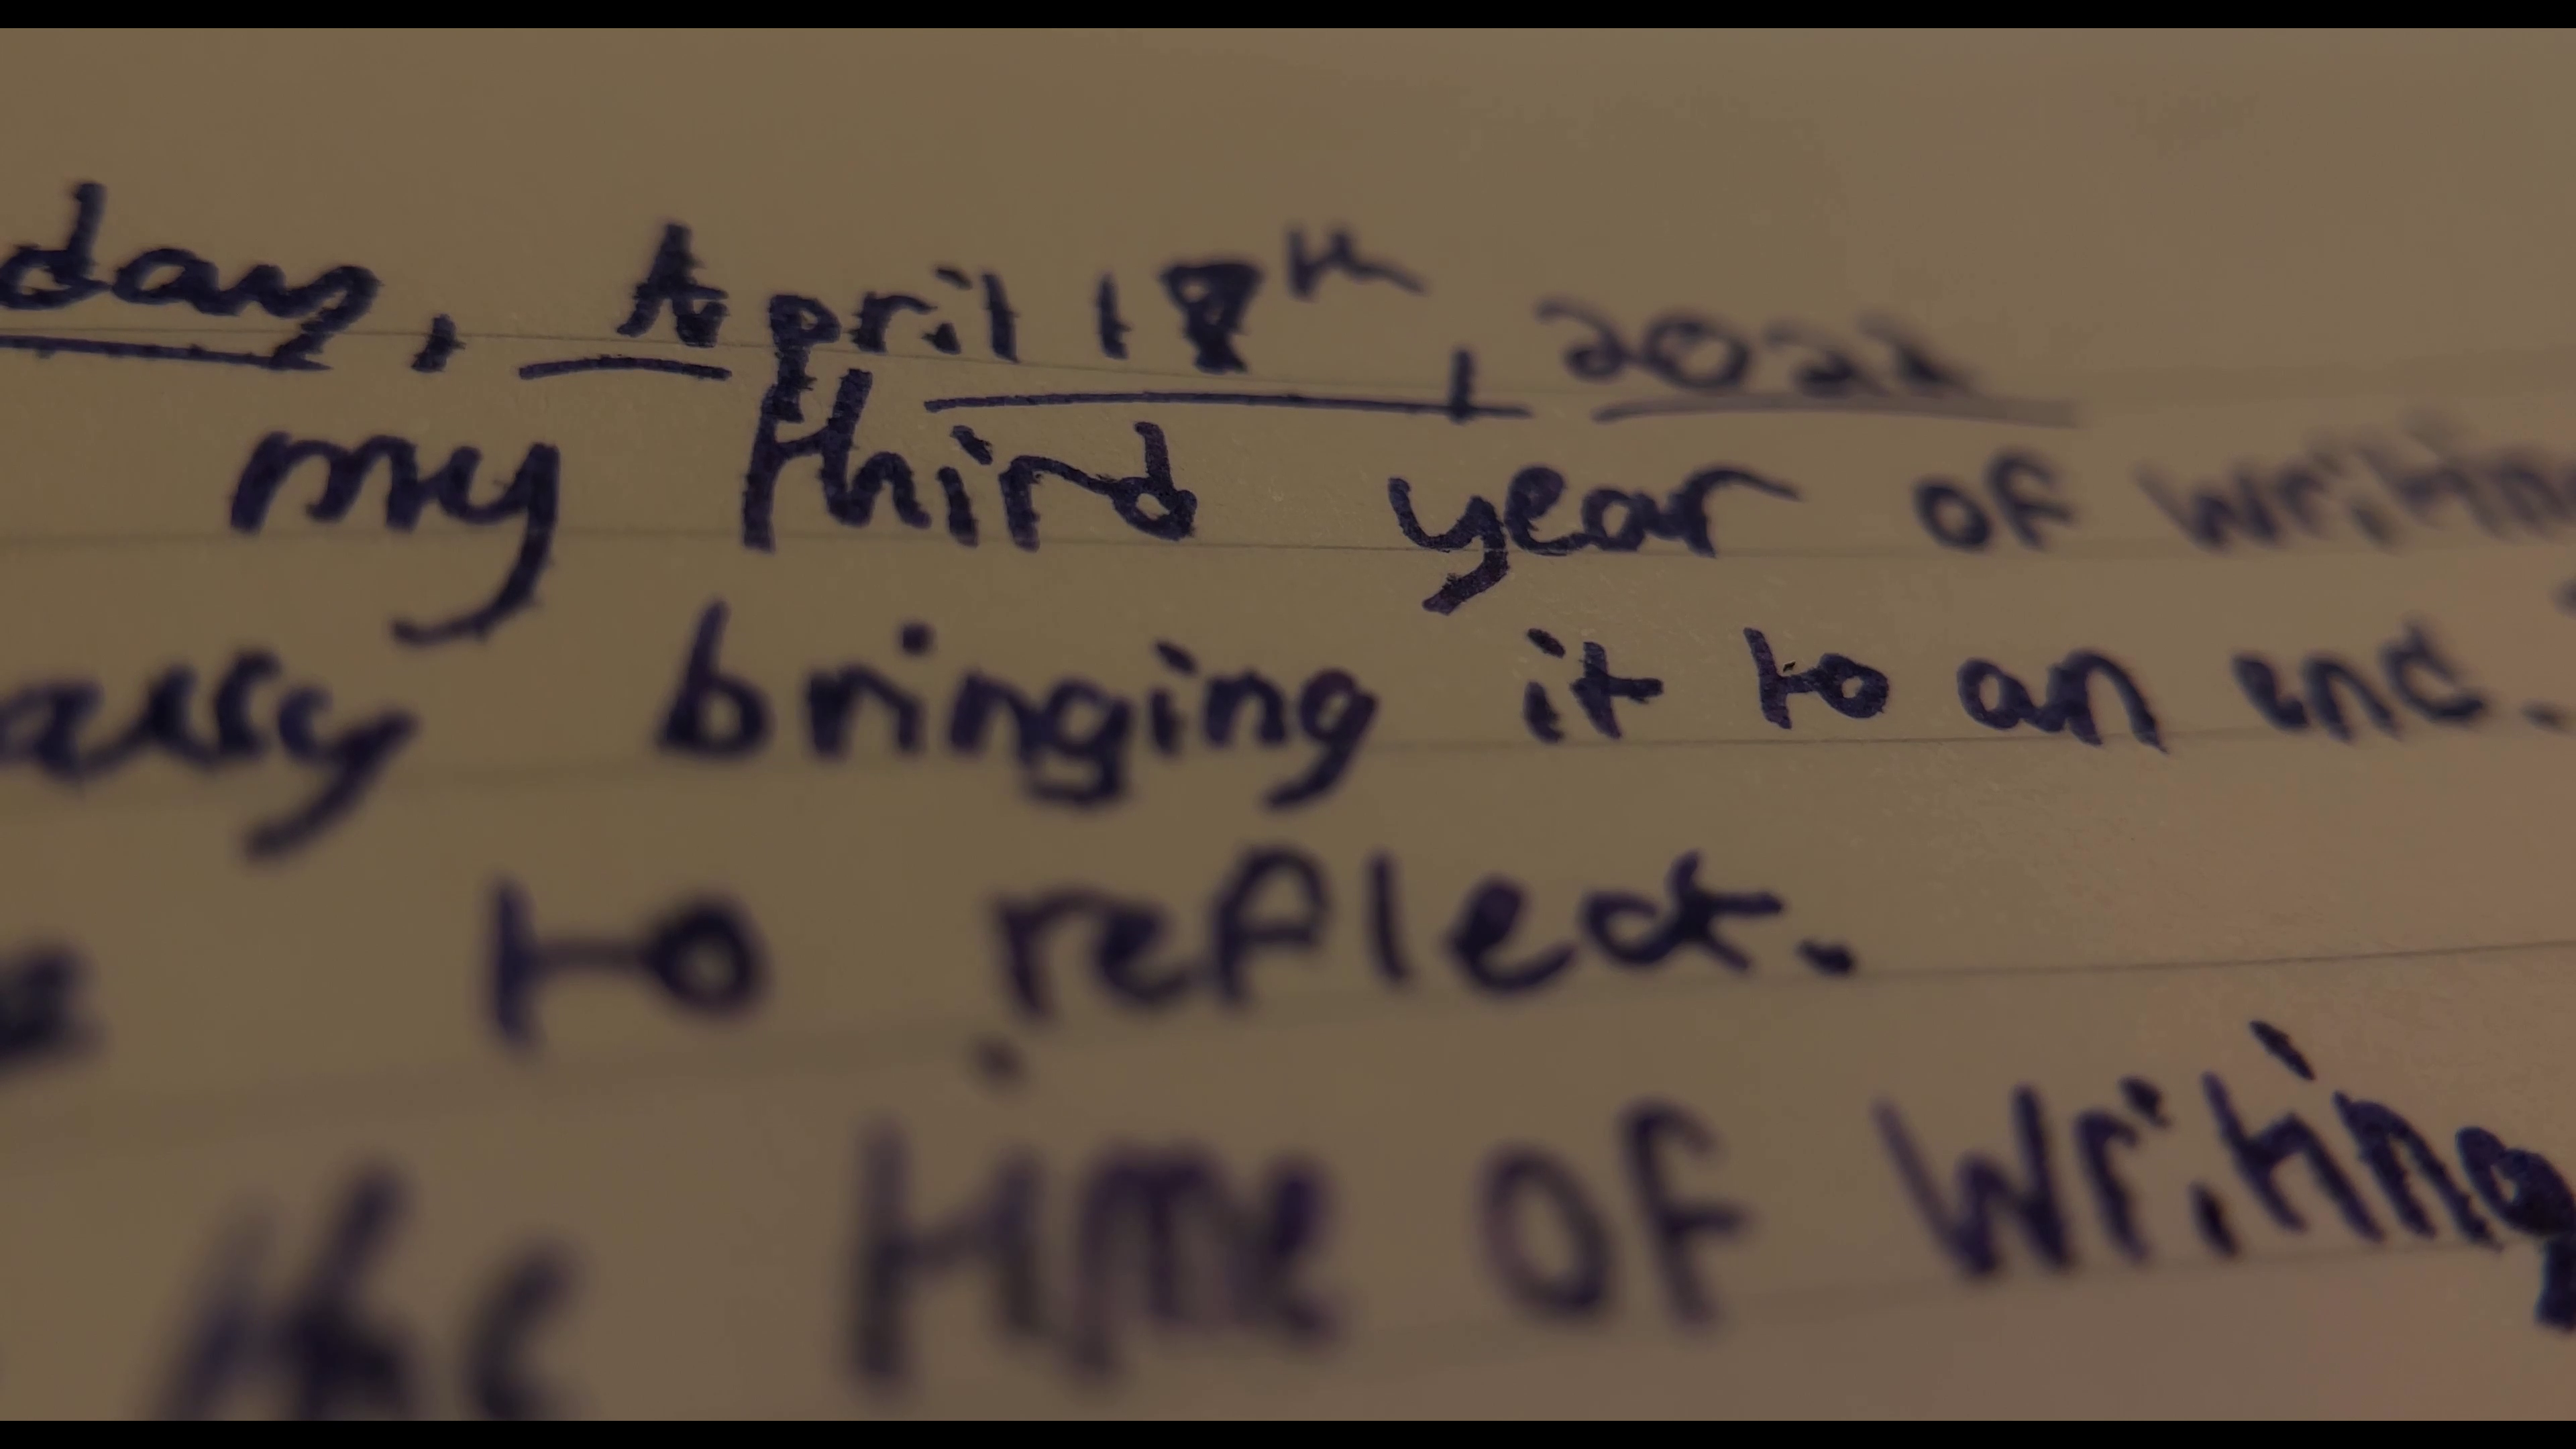 day, April 18th, 2022
my third year of writing
bringing it to an end.
to reflect.
the time of writing